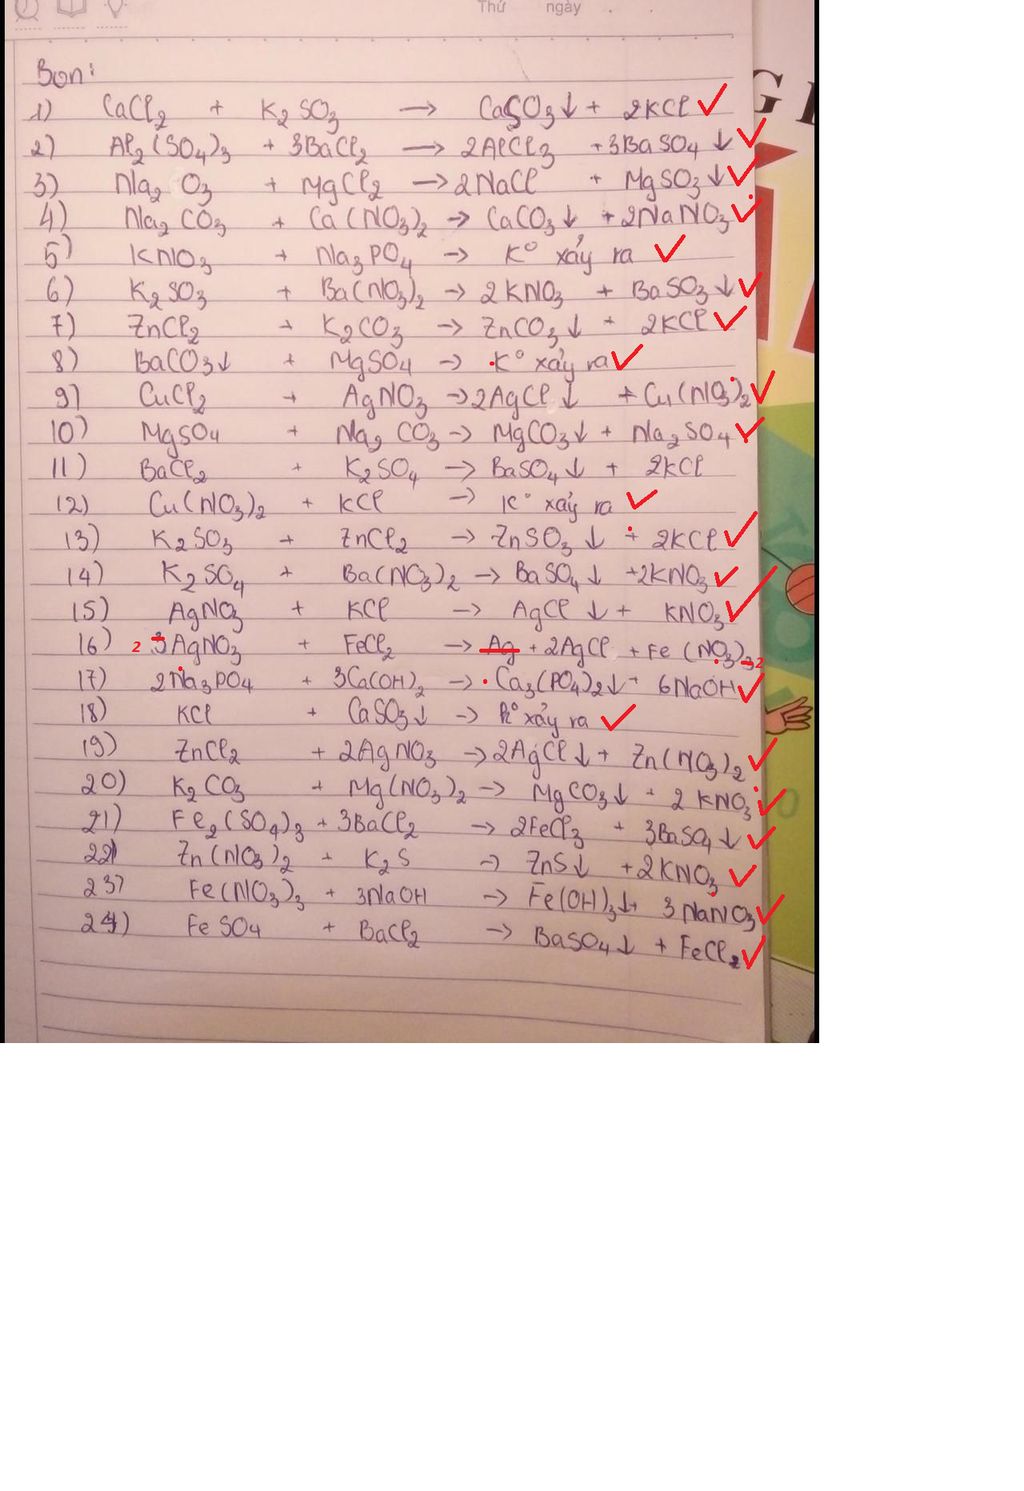 Thứ ngày
Bon:
1) CaCl2 + K2SO3 → CaSO3↓ + 2KCl
2) Al2(SO4)3 + 3BaCl2 → 2AlCl3 + 3BaSO4↓
3) Na2 O3 + MgCl2 → 2NaCl + MgSO3↓
4) Na2CO3 + Ca(NO3)2 → CaCO3↓ + 2NaNO3
5) KNO3 + Na3PO4 → K° xảy ra
6) K2SO3 + Ba(NO3)2 → 2KNO3 + BaSO3↓
7) ZnCl2 + K2CO3 → ZnCO3↓ + 2KCl
8) BaCO3↓ + MgSO4 → K° xảy ra
9) CuCl2 + AgNO3 → 2AgCl↓ + Cu(NO3)2
10) MgSO4 + Na2CO3 → MgCO3↓ + Na2SO4
11) BaCl2 + K2SO4 → BaSO4↓ + 2KCl
12) Cu(NO3)2 + KCl → K° xảy ra
13) K2SO3 + ZnCl2 → ZnSO3↓ + 2KCl
14) K2SO4 + Ba(NO3)2 → BaSO4↓ + 2KNO3
15) AgNO3 + KCl → AgCl↓ + KNO3
16) 2 3AgNO3 + FeCl2 → Ag + 2AgCl + Fe(NO3)3 2
17) 2Na3PO4 + 3Ca(OH)2 → Ca3(PO4)2↓ + 6NaOH
18) KCl + CaSO3↓ → K° xảy ra
19) ZnCl2 + 2AgNO3 → 2AgCl↓ + Zn(NO3)2
20) K2CO3 + Mg(NO3)2 → MgCO3↓ + 2KNO3
21) Fe2(SO4)3 + 3BaCl2 → 2FeCl3 + 3BaSO4↓
22) Zn(NO3)2 + K2S → ZnS↓ + 2KNO3
23) Fe(NO3)3 + 3NaOH → Fe(OH)3↓ + 3NaNO3
24) FeSO4 + BaCl2 → BaSO4↓ + FeCl2